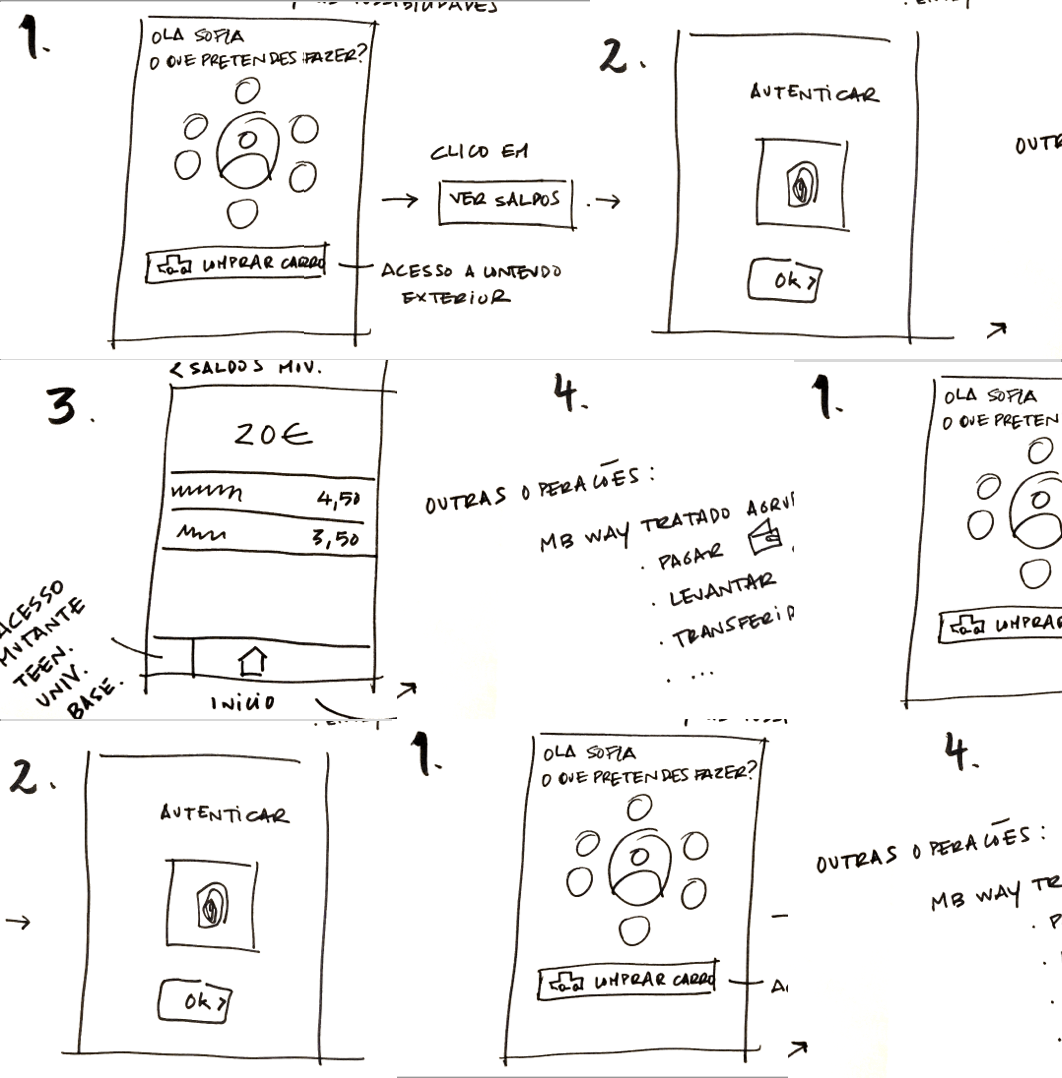 1.
OLA SOFIA
O QUE PRETENDES FAZER?
COMPRAR CARRO
CLICO EM
VER SALDOS
ACESSO A CONTEUDO
EXTERIOR
2.
AUTENTICAR
OK >
OUTR
< SALDOS MOV.
3.
20€
4,50
3,50
ACESSO
MUTANTE
TEEN.
UNIV.
BASE.
INICIO
4.
OUTRAS OPERAÇÕES:
MB WAY TRATADO AGRU
· PAGAR
· LEVANTAR
· TRANSFERIR
. ...
1.
OLA SOFIA
O QUE PRETEN
COMPRAR
2.
AUTENTICAR
OK >
1.
OLA SOFIA
O QUE PRETENDES FAZER?
COMPRAR CARRO
A
4.
OUTRAS OPERAÇÕES:
MB WAY TR
· P